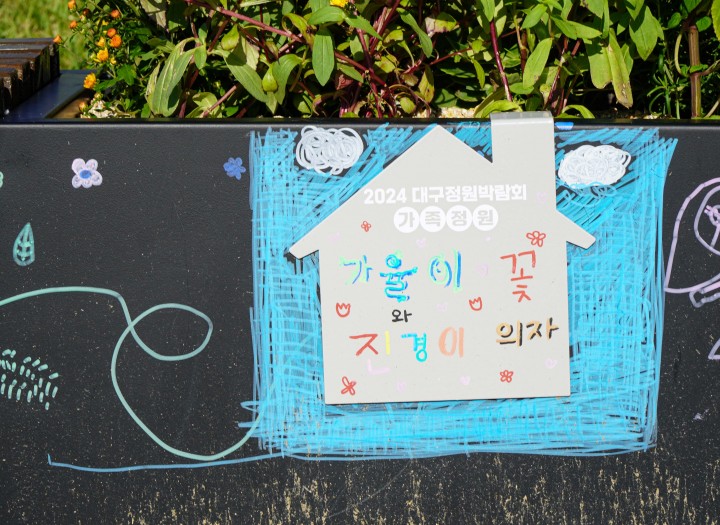 2024 대구정원박람회
가족정원
가율이 꽃
와
진경이 의자